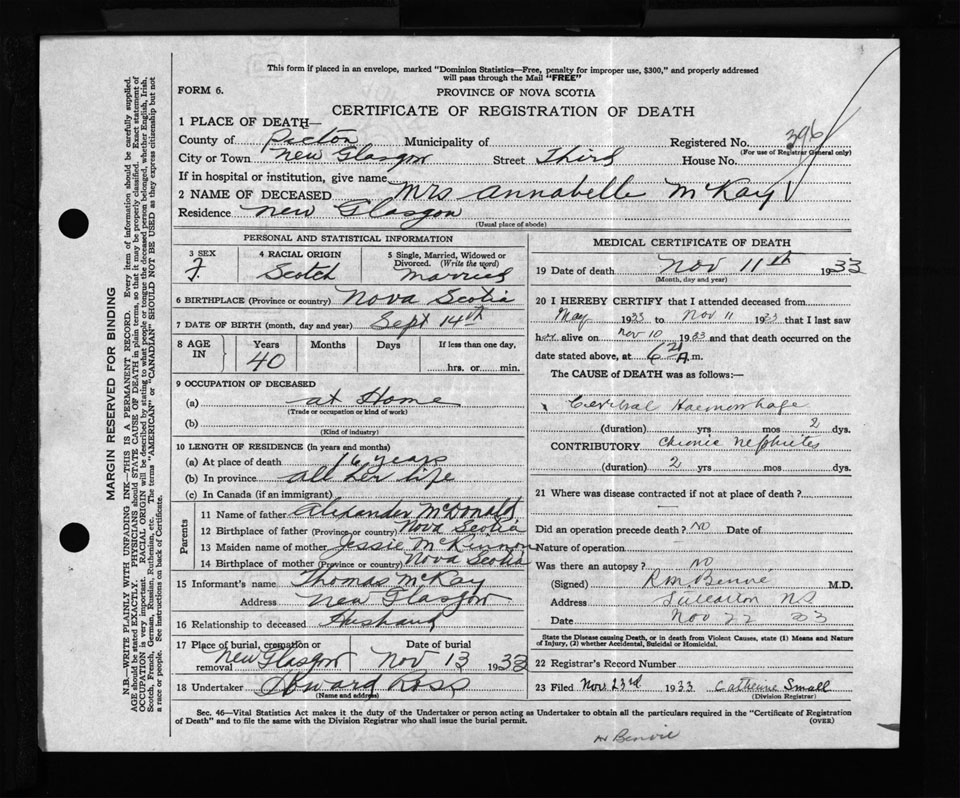 This form if placed in an envelope, marked "Dominion Statistics—Free, penalty for improper use, $300," and properly addressed
will pass through the Mail "FREE"
FORM 6.
PROVINCE OF NOVA SCOTIA
CERTIFICATE OF REGISTRATION OF DEATH
1 PLACE OF DEATH—
County of Pictou Municipality of Registered No. 396
(For use of Registrar General only)
City or Town New Glasgow Street Third House No.
If in hospital or institution, give name
2 NAME OF DECEASED Mrs Annabelle McKay
Residence New Glasgow
(Usual place of abode)
PERSONAL AND STATISTICAL INFORMATION
3 SEX F.
4 RACIAL ORIGIN Scotch
5 Single, Married, Widowed or Divorced. (Write the word) Married
6 BIRTHPLACE (Province or country) Nova Scotia
7 DATE OF BIRTH (month, day and year) Sept 14th
8 AGE IN Years Months Days If less than one day,
40 hrs. or min.
9 OCCUPATION OF DECEASED
(a) at Home
(Trade or occupation or kind of work)
(b)
(Kind of industry)
10 LENGTH OF RESIDENCE (in years and months)
(a) At place of death 16 years
(b) In province all her life
(c) In Canada (if an immigrant)
Parents
11 Name of father Alexander McDonald
12 Birthplace of father (Province or country) Nova Scotia
13 Maiden name of mother Jessie McKinnon
14 Birthplace of mother (Province or country) Nova Scotia
15 Informant's name Thomas McKay
Address New Glasgow
16 Relationship to deceased Husband
17 Place of burial, cremation or removal New Glasgow Date of burial Nov 13 1933
18 Undertaker Howard Ross
(Name and address)
MEDICAL CERTIFICATE OF DEATH
19 Date of death Nov 11th 1933
(Month, day and year)
20 I HEREBY CERTIFY that I attended deceased from
May 1933 to Nov 11 1933 that I last saw
her alive on Nov 10 1933 and that death occurred on the
date stated above, at A.m.
The CAUSE of DEATH was as follows:—
Cerebral Haemorrhage
(duration) yrs mos 2 dys.
CONTRIBUTORY Chronic Nephrites
(duration) 2 yrs mos dys.
21 Where was disease contracted if not at place of death?
Did an operation precede death? No Date of
Nature of operation —
Was there an autopsy? No
(Signed) M.D.
Address NS
Date Nov 22 33
State the Disease causing Death, or in death from Violent Causes, state (1) Means and Nature
of Injury, (2) whether Accidental, Suicidal or Homicidal.
22 Registrar's Record Number
23 Filed Nov 23rd 1933 Catherine Small
(Division Registrar)
Sec. 46—Vital Statistics Act makes it the duty of the Undertaker or person acting as Undertaker to obtain all the particulars required in the "Certificate of Registration
of Death" and to file the same with the Division Registrar who shall issue the burial permit.
(OVER)
MARGIN RESERVED FOR BINDING
N.B.—WRITE PLAINLY WITH UNFADING INK—THIS IS A PERMANENT RECORD. Every item of information should be carefully supplied.
AGE should be stated EXACTLY. PHYSICIANS should STATE CAUSE OF DEATH in plain terms, so that it may be properly classified. Exact statement of
OCCUPATION is very important. RACIAL ORIGIN will be described by stating to what people or tongue the deceased person belonged, whether English, Irish,
Scotch, French, German, Russian, Ruthenian, etc. The terms "AMERICAN" or "CANADIAN" SHOULD NOT BE USED as they express citizenship but not
a race or people. See instructions on back of Certificate.